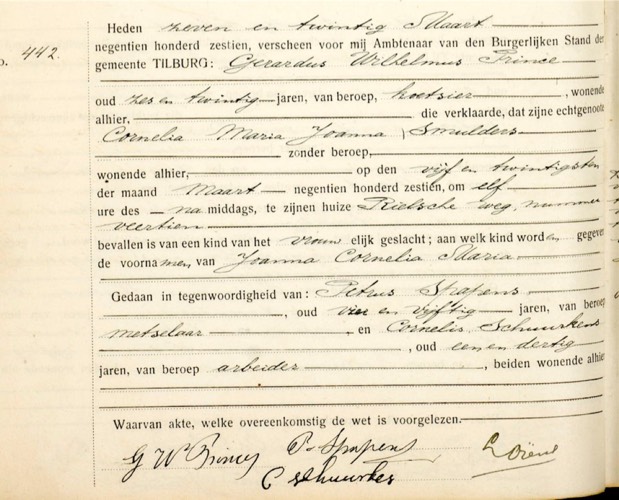 Heden zeven en twintig Maart
o. 442. negentien honderd zestien, verscheen voor mij Ambtenaar van den Burgerlijken Stand der
gemeente TILBURG: Gerardus Wilhelmus Prince
oud zes en twintig jaren, van beroep, koetsier, wonende
alhier, die verklaarde, dat zijne echtgenoote
Cornelia Maria Joanna Smulders
zonder beroep,
wonende alhier, op den vijf en twintigsten
der maand Maart negentien honderd zestien, om elf
ure des na middags, te zijnen huize Rielsche weg, nummer
veertien
bevallen is van een kind van het vrouwelijk geslacht; aan welk kind worden gegeven
de voornamen, van Joanna Cornelia Maria
Gedaan in tegenwoordigheid van: Petrus Spapens
, oud vier en vijftig jaren, van beroep
metselaar, en Cornelis Schuurkens
, oud een en dertig
jaren, van beroep arbeider, beiden wonende alhier
Waarvan akte, welke overeenkomstig de wet is voorgelezen.
G W Prince P. Spapens
C schuurkes